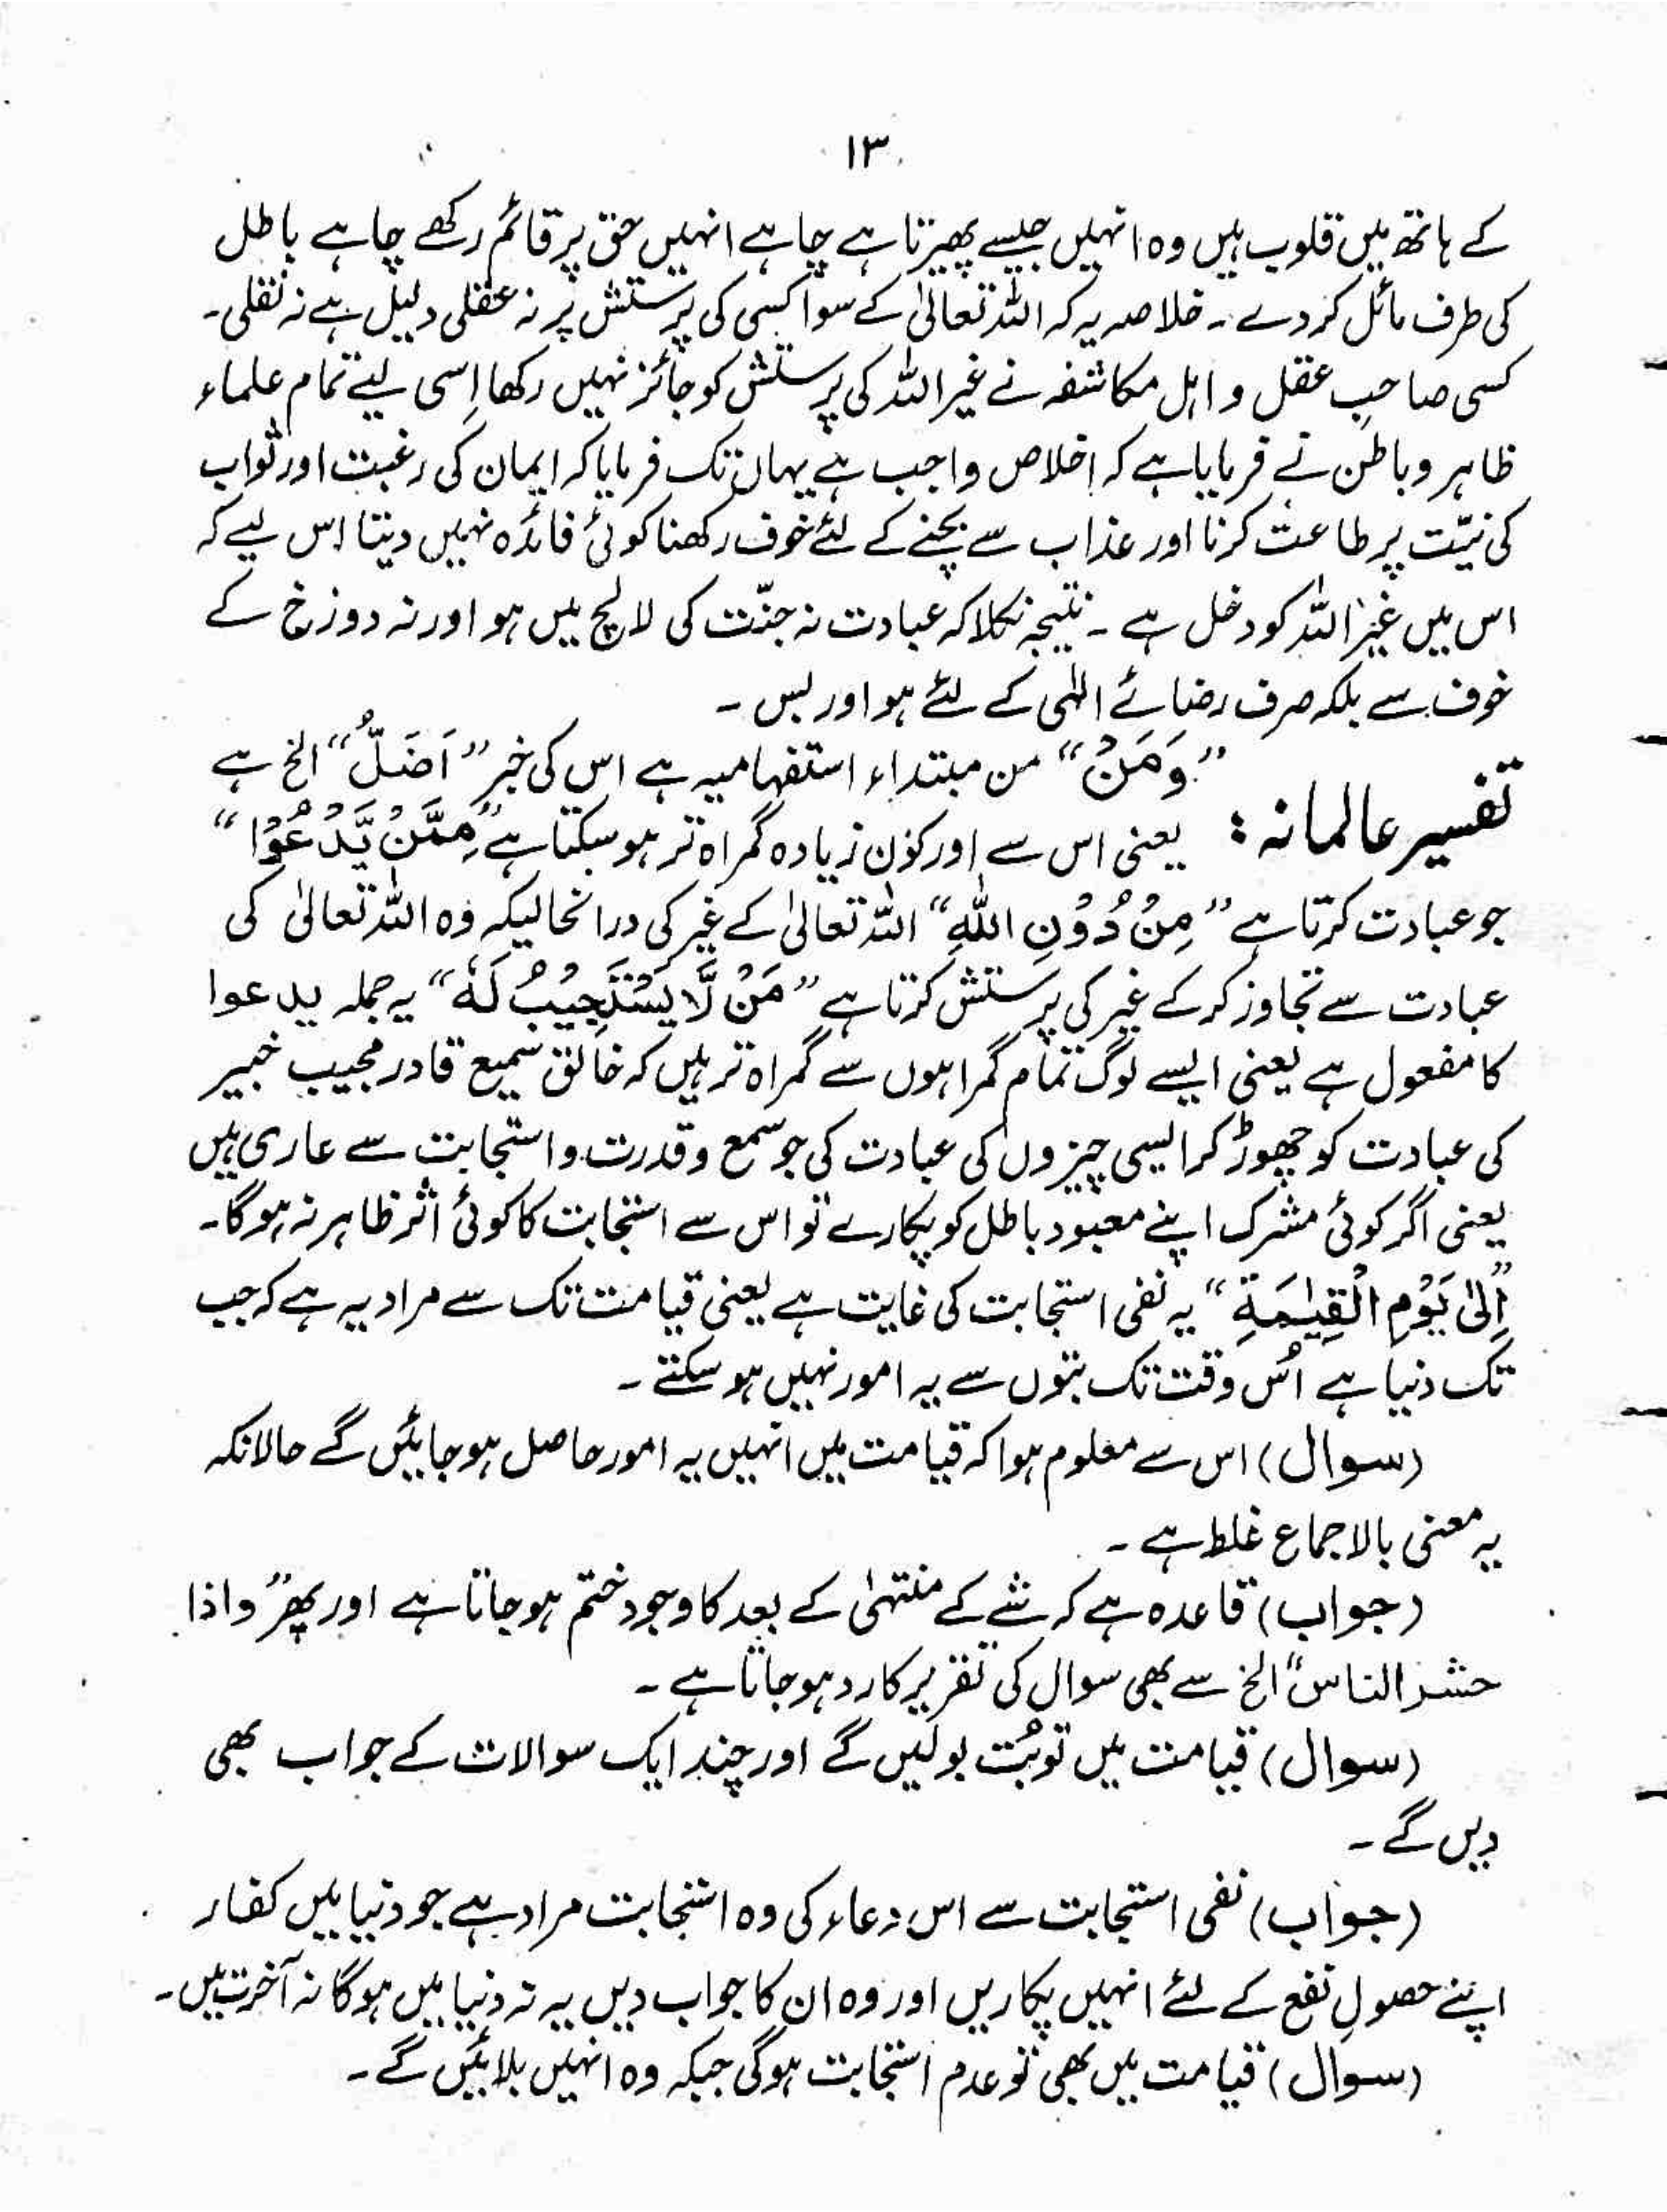 ۱۳
کے ہاتھ میں قلوب ہیں وہ انہیں جیسے پھیرتا ہے چاہے انہیں حق پر قائم رکھے چاہے باطل
کی طرف مائل کردے ۔ خلاصہ یہ کہ اللہ تعالیٰ کے سوا کسی کی پرستش پر نہ عقلی دلیل ہے نہ نقلی۔
کسی صاحبِ عقل و اہل مکاشفہ نے غیر اللہ کی پرستش کو جائز نہیں رکھا اِسی لیے تمام علماء
ظاہر و باطن نے فرمایا ہے کہ اخلاص واجب ہے یہاں تک فرمایا کہ ایمان کی رغبت اور ثواب
کی نیّت پر طاعت کرنا اور عذاب سے بچنے کے لئے خوف رکھنا کوئی فائدہ نہیں دیتا اس لیے کہ
اس میں غیر اللہ کو دخل ہے ۔ نتیجہ نکلا کہ عبادت نہ جنّت کی لالچ میں ہو اور نہ دوزخ کے
خوف سے بلکہ صرف رضائے الٰہی کے لئے ہو اور بس ۔
”وَمَنْ“ من مبتداء استفہامیہ ہے اس کی خبر ”اَضَلُّ“ الخ ہے
تفسیر عالمانہ : یعنی اس سے اور کون زیادہ گمراہ تر ہو سکتا ہے ”مِمَّنْ یَّدْعُوْا“
جو عبادت کرتا ہے ”مِنْ دُوْنِ اللّٰہِ“ اللہ تعالیٰ کے غیر کی درانحالیکہ وہ اللہ تعالیٰ کی
عبادت سے تجاوز کر کے غیر کی پرستش کرتا ہے ”مَنْ لَّا یَسْتَجِیْبُ لَہٗ“ یہ جملہ یدعوا
کا مفعول ہے یعنی ایسے لوگ تمام گمراہوں سے گمراہ تر ہیں کہ خالق سمیع قادر مجیب خبیر
کی عبادت کو چھوڑ کر ایسی چیزوں کی عبادت کی جو سمع و قدرت و استجابت سے عاری ہیں
یعنی اگر کوئی مشرک اپنے معبود باطل کو پکارے تو اس سے استجابت کا کوئی اثر ظاہر نہ ہوگا۔
”اِلٰی یَوْمِ الْقِیٰمَۃِ“ یہ نفی استجابت کی غایت ہے یعنی قیامت تک سے مراد یہ ہے کہ جب
تک دنیا ہے اُس وقت تک بتوں سے یہ امور نہیں ہو سکتے ۔
(سوال) اس سے معلوم ہوا کہ قیامت میں انہیں یہ امور حاصل ہو جائیں گے حالانکہ
یہ معنی بالاجماع غلط ہے ۔
(جواب) قاعدہ ہے کہ شے کے منتہیٰ کے بعد کا وجود ختم ہو جاتا ہے اور پھر ”واذا
حشر الناس“ الخ سے بھی سوال کی تقریر کا رد ہو جاتا ہے ۔
(سوال) قیامت میں تو بُت بولیں گے اور چند ایک سوالات کے جواب بھی
دیں گے ۔
(جواب) نفی استجابت سے اس دعاء کی وہ استجابت مراد ہے جو دنیا میں کفار
اپنے حصولِ نفع کے لئے انہیں پکاریں اور وہ ان کا جواب دیں یہ نہ دنیا میں ہوگا نہ آخرت میں۔
(سوال) قیامت میں بھی تو عدم استجابت ہوگی جبکہ وہ انہیں بلائیں گے ۔